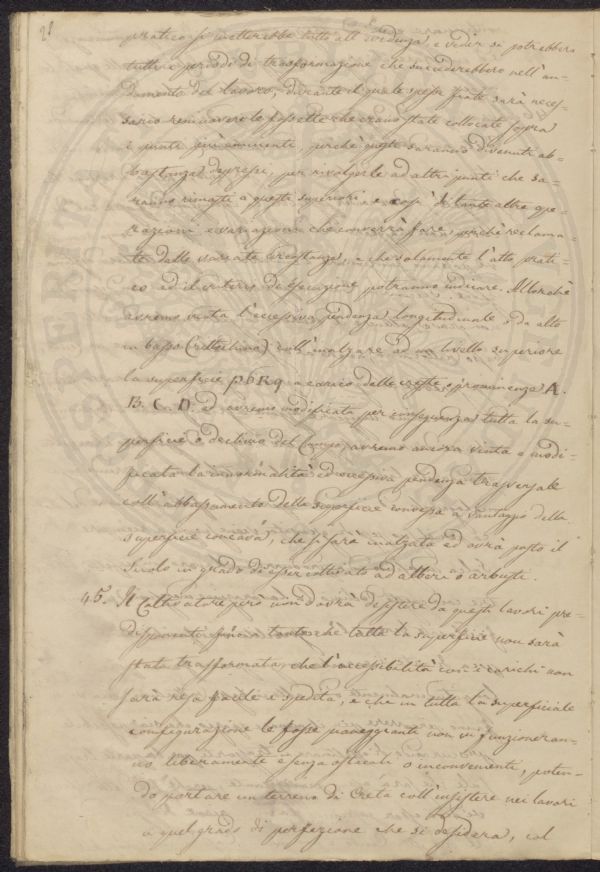 28
pratico si metterebbe tutto all'evidenza, e veder si potrebbero
tutti i periodi di trasformazione che succederebbero nell'an-
damento del lavoro, durante il quale spesse fiate sarà neces-
sario remuovere le fossette che erano state collocate sopra
i punti più eminenti, perchè questi saranno divenuti ab-
bastanza depressi, per rivolgerle ad altri punti che sa-
ranno rimasti a questi superiori, e così di tante altre ope-
razioni e variazioni che converrà fare, perchè reclama-
te dalle svariate circostanze, e che solamente l'atto prati-
co ed il criterio di esecuzione potranno indicare. Allorchè
avremo vinta l'eccessiva pendenza longitudinale o da alto
in basso (rettilinea) coll'inalzare ad un livello superiore
la superficie p b R q a carico delle creste, o prominenze A.
B. C. D. ed avremo modificata per conseguenza tutta la su-
perficie o declivio del Campo, avremo ancora vinta o modi-
ficata la innormalità ed eccessiva pendenza trasversale
coll'abbassamento della superficie convessa a vantaggio della
superficie concava, che si sarà inalzata ed avrà posto il
Suolo in grado di esser coltivato ad alberi o arbusti.
45. Il Coltivatore però non dovrà desistere da questi lavori pre-
disponenti finora tanto che tutta la superficie non sarà
stata trasformata, che l'accessibilità con i carichi non
sarà resa facile e spedita, e che in tutta la superficiale
configurazione le fosse paneggianti non vi funzioneran-
no liberamente e senza ostacoli o inconvenienti, poten-
do portare un terreno di Creta coll'insistere nei lavori
a quel grado di perfezione che si desidera, col